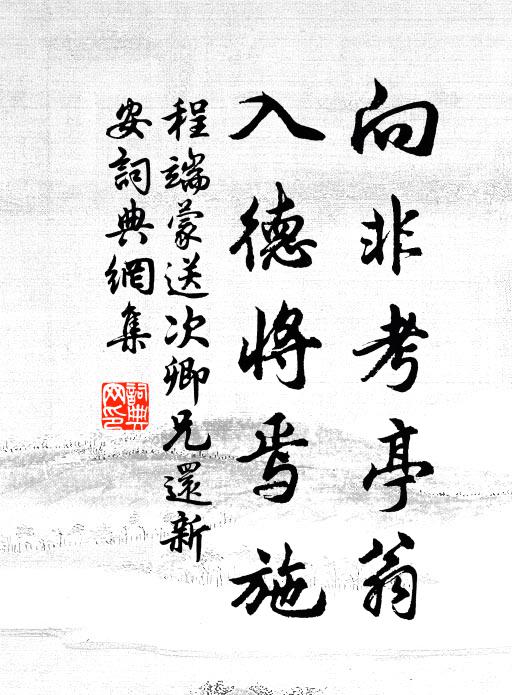 向非考亭翁
入德將焉施
程端蒙送次卿兄還新
安詞典網集
詞典網印